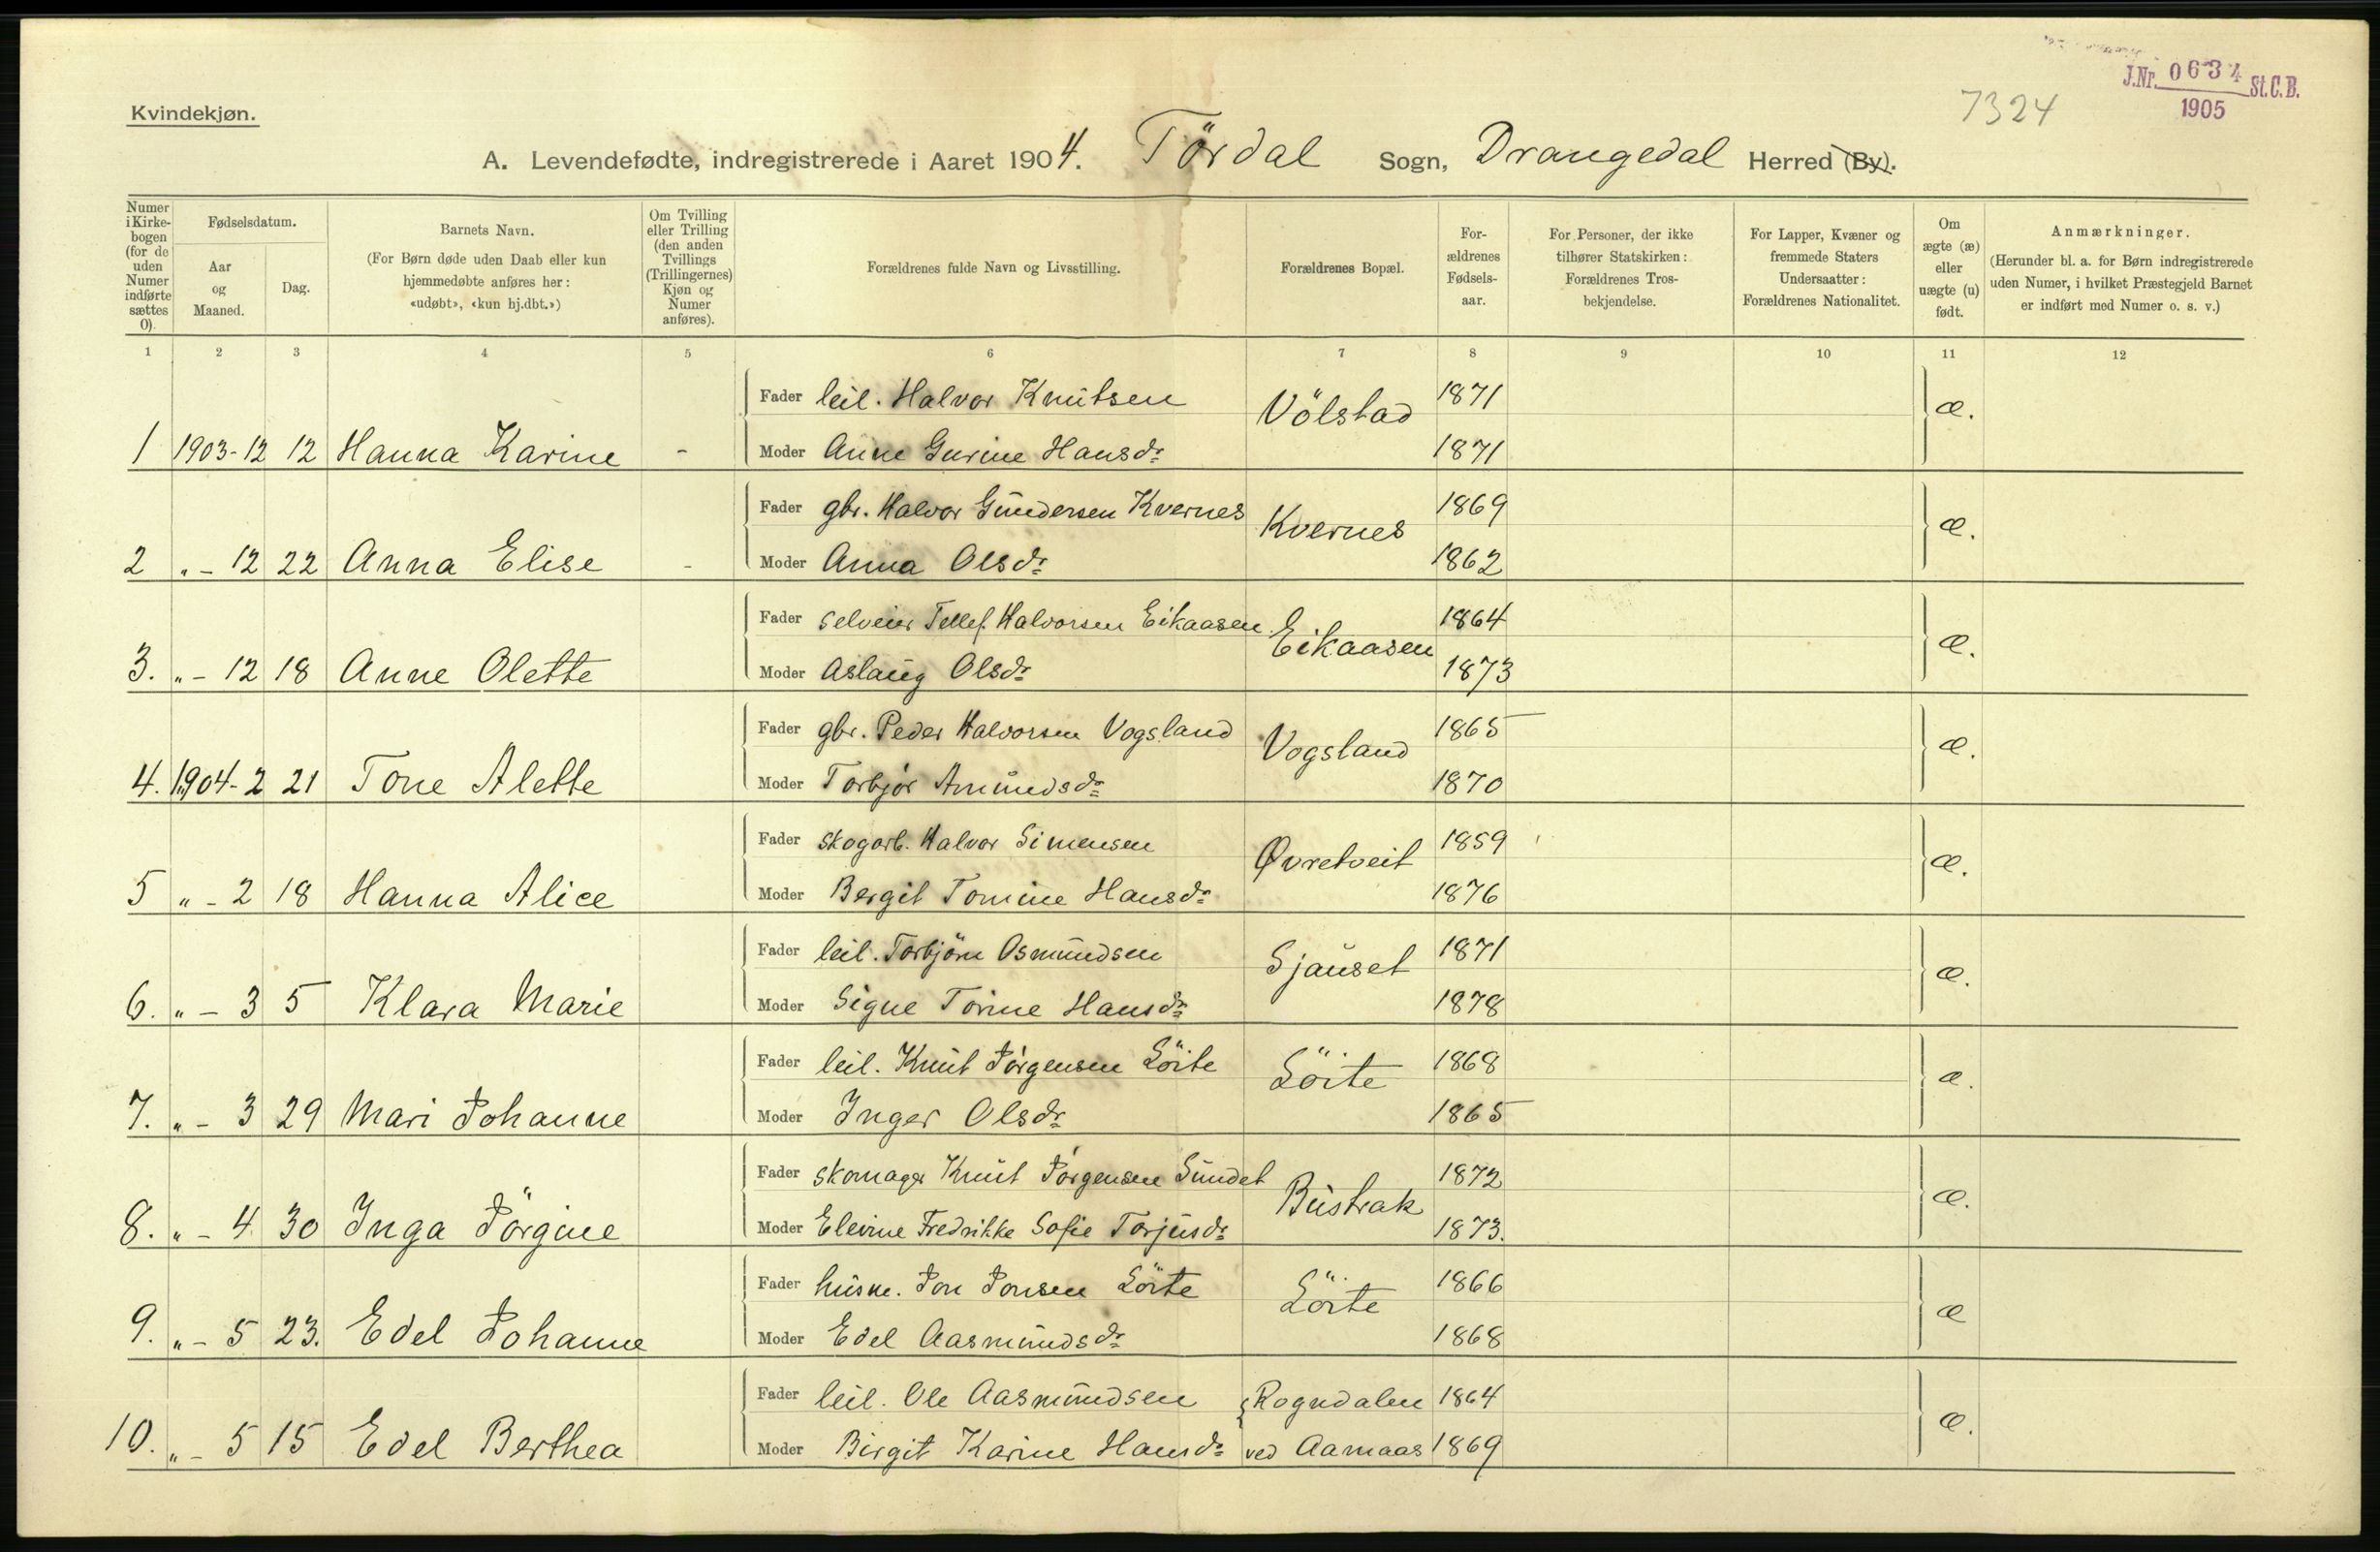 J.Nr. 0634 St.C.B.
1905
7324
Kvindekjøn.
A. Levendefødte, indregistrerede i Aaret 1904. Tördal Sogn, Drangedal Herred (By).
Numer i Kirkebogen (for de uden Numer indførte sættes 0).
Fødselsdatum.
Aar og Maaned.
Dag.
Barnets Navn.
(For Børn døde uden Daab eller kun hjemmedøbte anføres her: «udøbt», «kun hj.dbt.»)
Om Tvilling eller Trilling (den anden Tvillings (Trillingernes) Kjøn og Numer anføres).
Forældrenes fulde Navn og Livsstilling.
Forældrenes Bopæl.
Forældrenes Fødselsaar.
For Personer, der ikke tilhører Statskirken: Forældrenes Trosbekjendelse.
For Lapper, Kvæner og fremmede Staters Undersaatter: Forældrenes Nationalitet.
Om ægte (æ) eller uægte (u) født.
Anmærkninger.
(Herunder bl. a. for Børn indregistrerede uden Numer, i hvilket Præstegjeld Barnet er indført med Numer o. s. v.)
1 2 3 4 5 6 7 8 9 10 11 12
Fader leil. Halvor Knutsen Völstad 1871 æ.
1 1903-12 12 Hanna Karine - Moder Anne Gurine Hansdr 1871
Fader gbr. Halvor Gundersen Kvernes Kvernes 1869 æ.
2 „ - 12 22 Anna Elise - Moder Anna Olsdr 1862
Fader selveier Tellef Halvorsen Eikaasen. Eikaasen 1864 æ.
3. „ - 12 18 Anne Olette Moder Aslaug Olsdr 1873
Fader gbr. Peder Halvorsen Vogsland Vogsland 1865 æ.
4. 1904-2 21 Tone Alette Moder Torbjör Amundsdr 1870
Fader skogarb. Halvor Simensen Øvretveit 1859 æ.
5 „ - 2 18 Hanna Alice Moder Bergit Tomine Hansdr 1876
Fader leil. Torbjörn Osmundsen Sjauset 1871 æ.
6. „ - 3 5 Klara Marie Moder Signe Torine Hansdr 1878
Fader leil. Knut Jörgensen Löite Löite 1868 æ.
7. „ - 3 29 Mari Johanne Moder Inger Olsdr 1865
Fader skomager Knut Jörgensen Sundet Bustrak 1872 æ.
8. „ - 4 30 Inga Jörgine Moder Elevine Fredrikke Sofie Torjusdr 1873.
Fader husm. Jon Jonsen Löite Löite 1866 æ
9. „ - 5 23. Edel Johanne Moder Edel Aasmundsdr 1868
Fader leil. Ole Aasmundsen Rogndalen 1864 æ.
10. „ - 5 15 Edel Berthea Moder Birgit Karine Hansdr ved Aamaas 1869